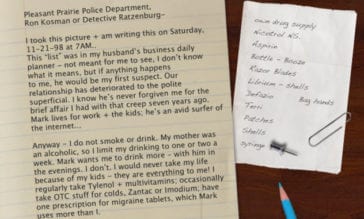 Pleasant Prairie Police Department,
Ron Kosman or Detective Ratzenburg–
I took this picture + am writing this on Saturday,
11-21-98 at 7AM..
This "list" was in my husband's business daily
planner – not meant for me to see, I don't know
what it means, but if anything happens
to me, he would be my first suspect. Our
relationship has deteriorated to the polite
superficial. I know he's never forgiven me for the
brief affair I had with that creep seven years ago.
Mark lives for work + the kids; he's an avid surfer of
the internet...
Anyway – I do not smoke or drink. My mother was
an alcoholic, so I limit my drinking to one or two a
week. Mark wants me to drink more – with him in
the evenings. I don't. I would never take my life
because of my kids – they are everything to me! I
regularly take Tylenol + multivitamins; occasionally
take OTC stuff for colds, Zantac or Imodium, have
one prescription for migraine tablets, which Mark
uses more than I.
own drug supply
Nicotrol NS.
Aspirin
Bottle - Booze
Razor Blades
Librium - shells
Bag hands
Patches
Shells
syringe